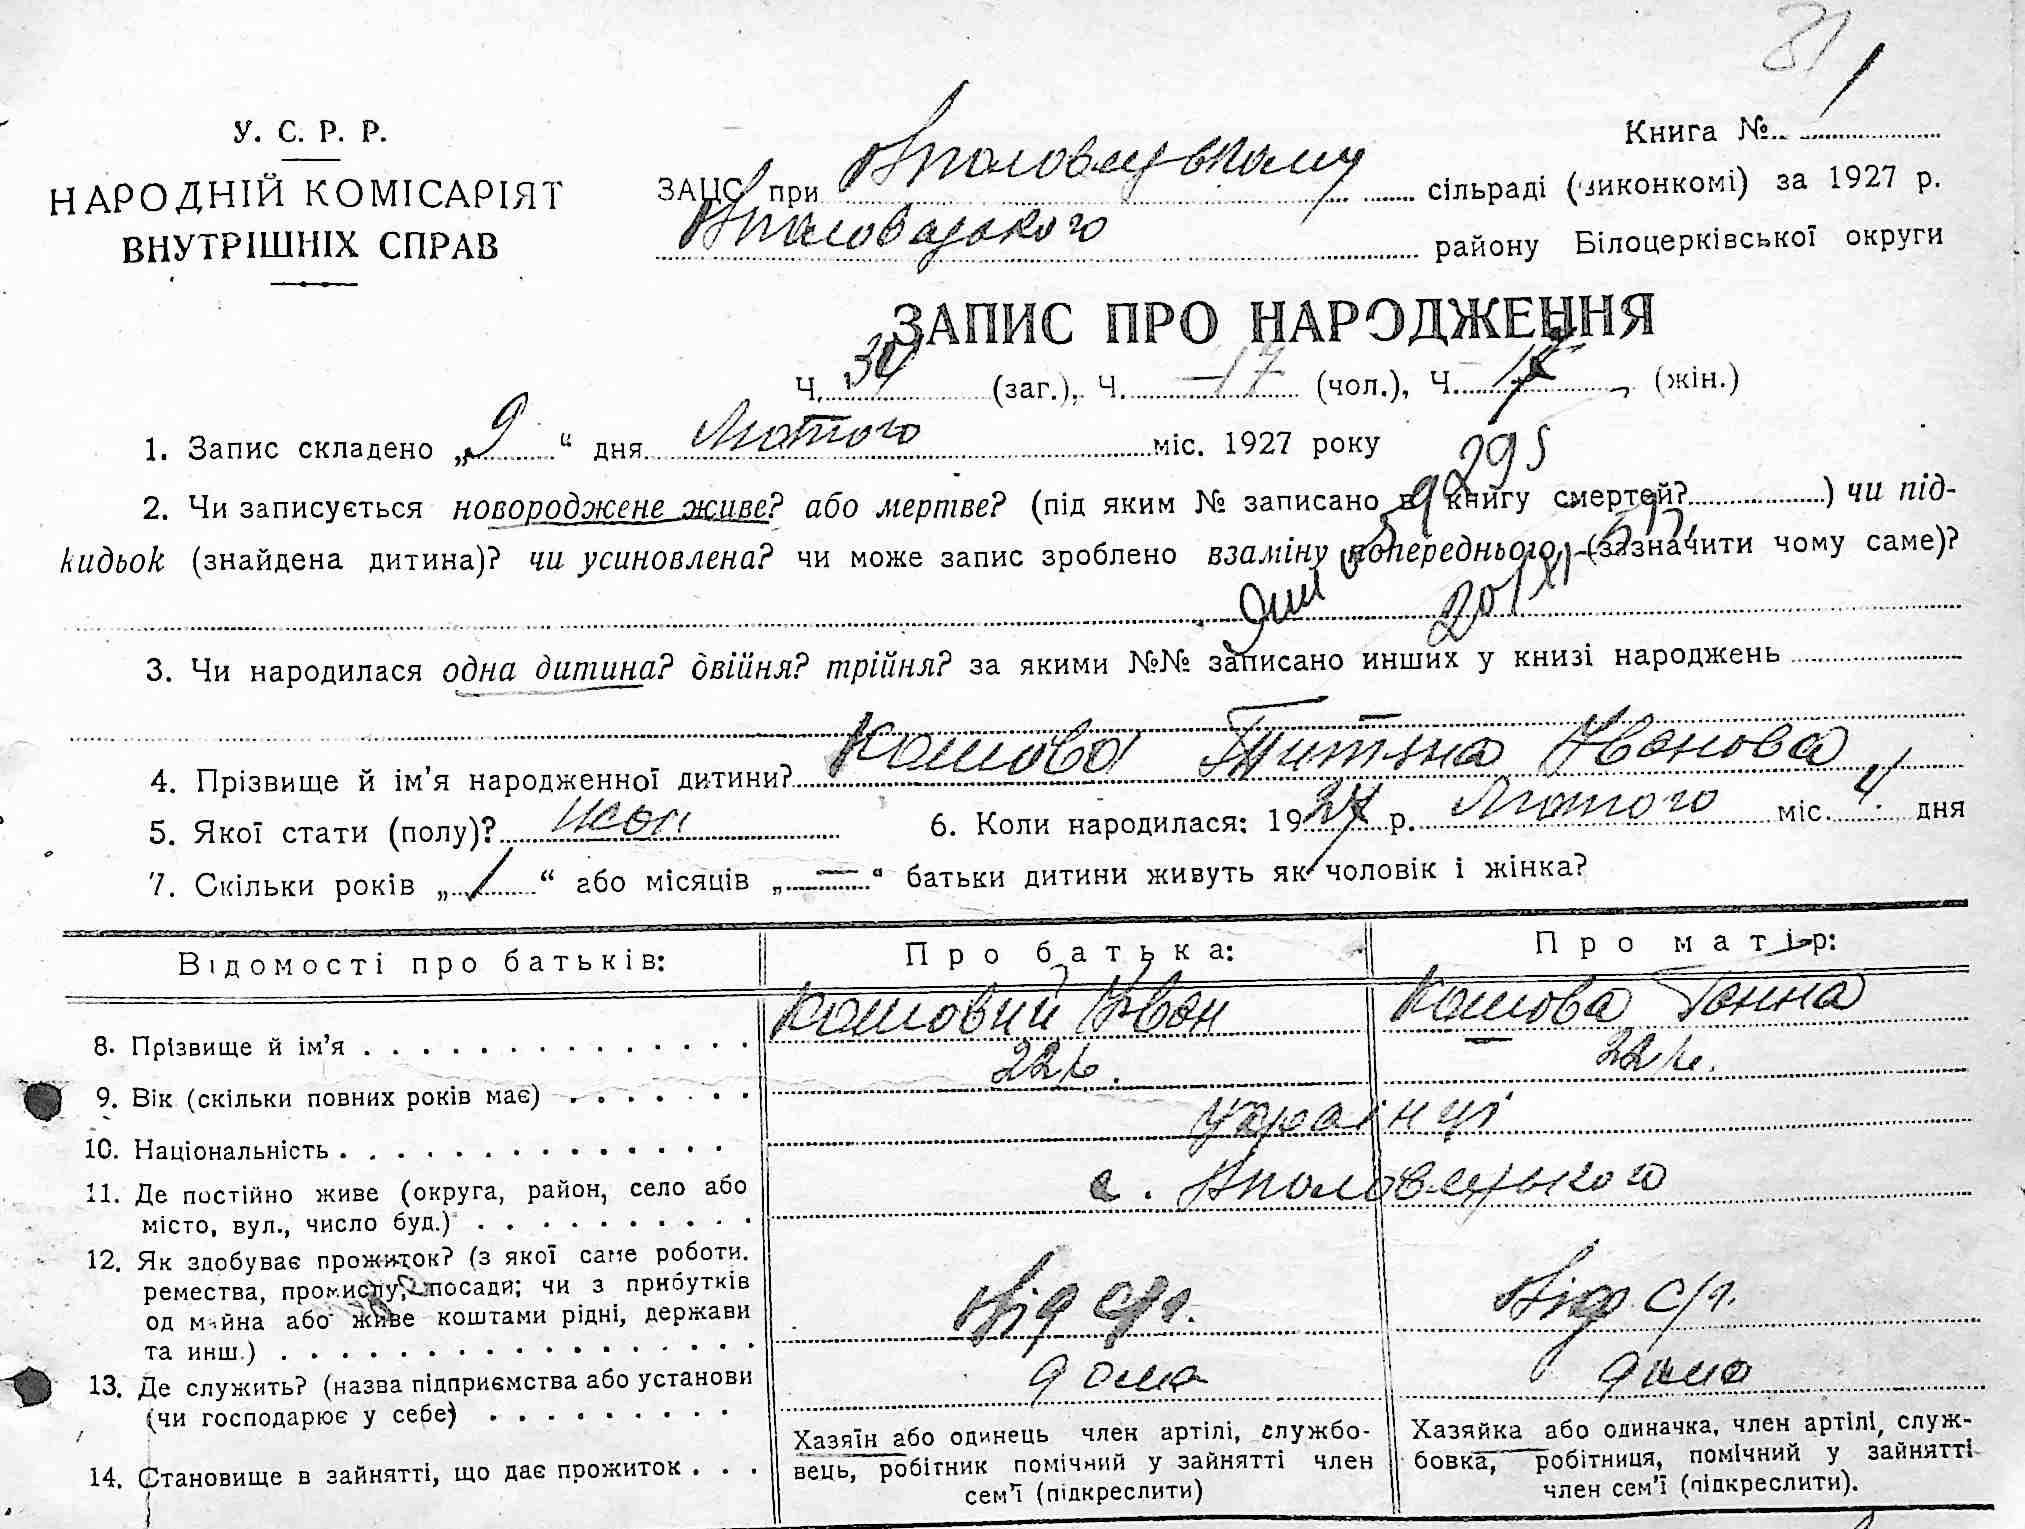 31
У. С. Р. Р.
НАРОДНІЙ КОМІСАРІЯТ
ВНУТРІШНІХ СПРАВ
Книга № 1
ЗАЦС при Вполовецькому сільраді (виконкомі) за 1927 р.
Вполовецького району Білоцерківської округи
ЗАПИС ПРО НАРОДЖЕННЯ
Ч. 30 (заг.), Ч. 17 (чол.), Ч. (жін.)
1. Запис складено „9“ дня Лютого міс. 1927 року
295
2. Чи записується новороджене живе? або мертве? (під яким № записано в книгу смертей?) чи під-
кидьок (знайдена дитина)? чи усиновлена? чи може запис зроблено взаміну попереднього, (зазначити чому саме)?
20/XI-57
3. Чи народилася одна дитина? двійня? трійня? за якими №№ записано инших у книзі народжень
4. Прізвище й ім’я народженної дитини? Кошова Титяна Иванова
5. Якої стати (полу)? жон 6. Коли народилася: 1927 р. Лютого міс. 4 дня
7. Скільки років „1“ або місяців „—“ батьки дитини живуть як чоловік і жінка?
Відомості про батьків: Про батька: Про матір:
8. Прізвище й ім’я Кошовий Иван Кошова Ганна
9. Вік (скільки повних років має) 22 р. 22 р.
10. Національність українці
11. Де постійно живе (округа, район, село або
місто, вул., число буд.) с. Вполовецького
12. Як здобуває прожиток? (з якої саме роботи.
ремества, промислу, посади; чи з прибутків
од майна або живе коштами рідні, держави
та инш.) Від с/г. Від с/г.
13. Де служить? (назва підприємства або установи
(чи господарює у себе) дома дома
14. Становище в зайнятті, що дає прожиток
Хазяїн або одинець член артілі, службо-
вець, робітник помічний у зайнятті член
сем’ї (підкреслити)
Хазяйка або одиначка, член артілі, служ-
бовка, робітниця, помічний у зайнятті
член сем’ї (підкреслити).